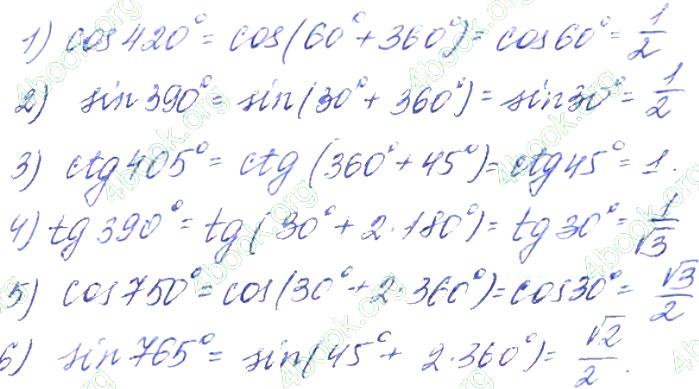 1) cos420° = cos(60° + 360°) = cos60° = 1/2
2) sin390° = sin(30° + 360°) = sin30° = 1/2
3) ctg405° = ctg(360° + 45°) = ctg45° = 1.
4) tg390° = tg(30° + 2·180°) = tg30° = 1/√3
5) cos750° = cos(30° + 2·360°) = cos30° = √3/2
6) sin765° = sin(45° + 2·360°) = √2/2.
4book.org